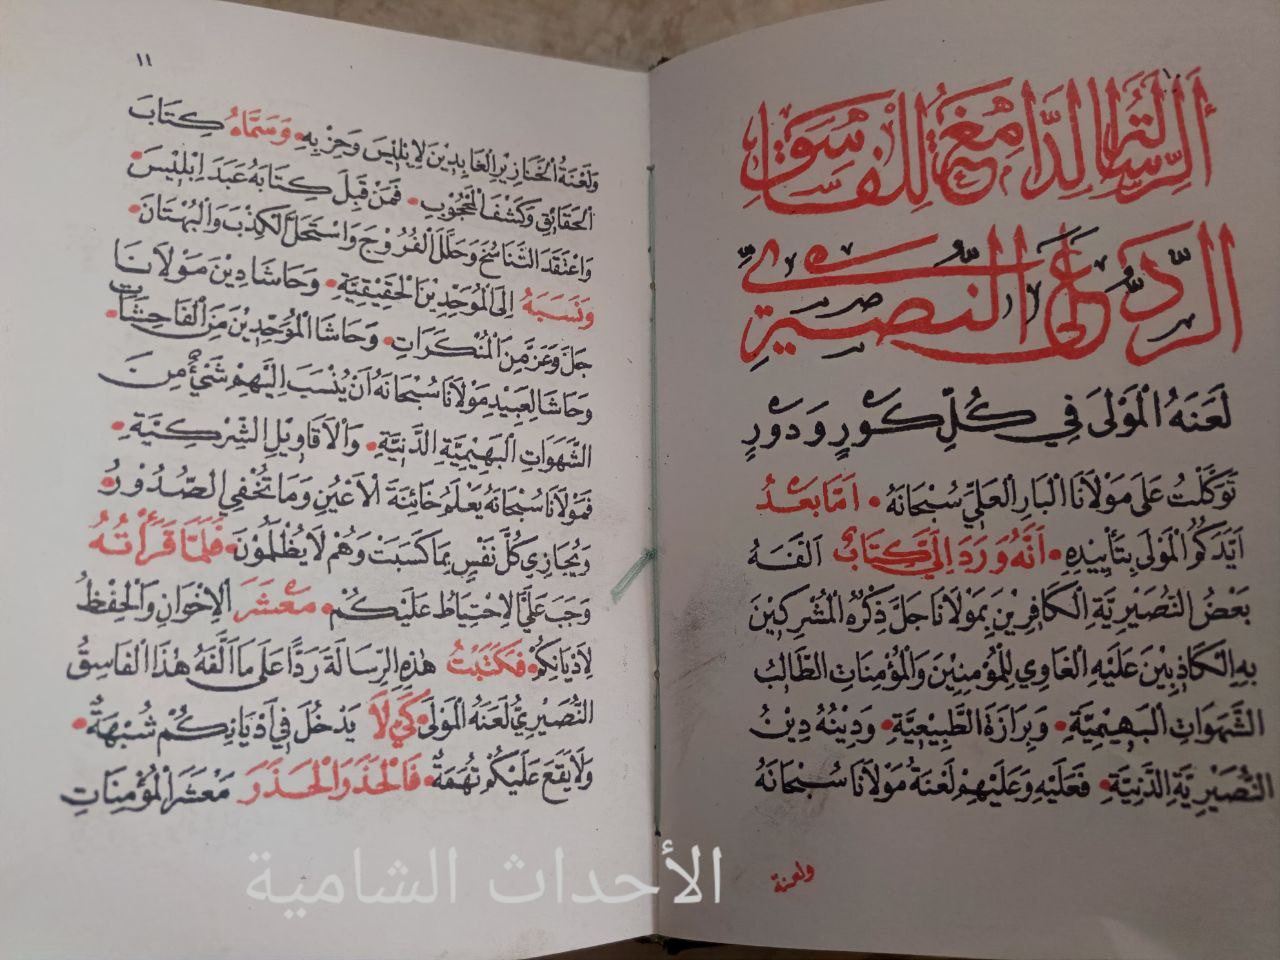 ١٠
الرِّسَالَةُ الدَّامِغَةُ لِلْفَاسِقِ
الرَّدُّ عَلَى النُّصَيْرِيِّ
لَعَنَهُ الْمَوْلَى فِي كُلِّ كَوْرٍ وَدَوْرٍ
تَوَكَّلْتُ عَلَى مَوْلَانَا الْبَارِ الْعَلِيِّ سُبْحَانَهُ • اَمَّا بَعْدُ
اَيَّدَكُمُ الْمَوْلَى بِتَأْيِيْدِهِ • اَنَّهُ وَرَدَ اِلَيَّ كِتَابٌ اَلَّفَهُ
بَعْضُ النُّصَيْرِيَّةِ الْكَافِرِيْنَ بِمَوْلَانَا جَلَّ ذِكْرُهُ الْمُشْرِكِيْنَ
بِهِ الْكَاذِبِيْنَ عَلَيْهِ الْغَاوِي لِلْمُؤْمِنِيْنَ وَالْمُؤْمِنَاتِ الطَّالِبُ
الشَّهَوَاتِ الْبَهِيْمِيَّةِ • وَبِرَازَةَ الطَّبِيْعِيَّةِ • وَدِيْنُهُ دِيْنُ
النُّصَيْرِيَّةِ الدَّنِيَّةِ • فَعَلَيْهِ وَعَلَيْهِمْ لَعْنَةُ مَوْلَانَا سُبْحَانَهُ
ولعنة
١١
وَلَعْنَةُ الْخَنَازِيْرِ الْعَابِدِيْنَ لِاِبْلِيْسَ وَحِزْبِهِ • وَسَمَّاهُ كِتَابَ
الْحَقَائِقِ وَكَشْفَ الْمَحْجُوْبِ • فَمَنْ قَبِلَ كِتَابَهُ عَبَدَ اِبْلِيْسَ •
وَاعْتَقَدَ التَّنَاسُخَ وَحَلَّلَ الْفُرُوْجَ وَاسْتَحَلَّ الْكَذِبَ وَالْبُهْتَانَ •
وَنَسَبَهُ اِلَى الْمُوَحِّدِيْنَ الْحَقِيْقِيَّةِ • وَحَاشَا دِيْنَ مَوْلَانَا
جَلَّ وَعَزَّ مِنَ الْمُنْكَرَاتِ • وَحَاشَا الْمُوَحِّدِيْنَ مِنَ الْفَاحِشَاتِ •
وَحَاشَا لِعَبِيْدِ مَوْلَانَا سُبْحَانَهُ اَنْ يُنْسَبَ اِلَيْهِمْ شَيْءٌ مِنَ
الشَّهَوَاتِ الْبَهِيْمِيَّةِ الدَّنِيَّةِ • وَالْاَقَاوِيْلِ الشِّرْكِيَّةِ •
فَمَوْلَانَا سُبْحَانَهُ يَعْلَمُ خَائِنَةَ الْاَعْيُنِ وَمَا تُخْفِي الصُّدُوْرُ •
وَيُجَازِي كُلَّ نَفْسٍ بِمَا كَسَبَتْ وَهُمْ لَا يُظْلَمُوْنَ • فَلَمَّا قَرَأْتُهُ
وَجَبَ عَلَيَّ الْاِحْتِيَاطُ عَلَيْكُمْ • مَعْشَرَ الْاِخْوَانِ وَالْحِفْظُ
لِاَدْيَانِكُمْ • فَكَتَبْتُ هٰذِهِ الرِّسَالَةَ رَدًّا عَلَى مَا اَلَّفَهُ هٰذَا الْفَاسِقُ
النُّصَيْرِيُّ لَعَنَهُ الْمَوْلَى • كَيْ لَا يَدْخُلَ فِي اَدْيَانِكُمْ شُبْهَةٌ •
وَلَا يَقَعَ عَلَيْكُمْ تُهَمَةٌ • فَالْحَذَرَ الْحَذَرَ مَعْشَرَ الْمُؤْمِنَاتِ
الأحداث الشامية